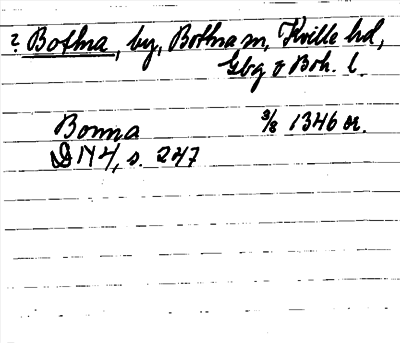 ? Bottna, by, Bottna sn, Kville hd,
Gbg o Boh. l.
Bonna 3/8 1346 or.
DN 4, s. 247